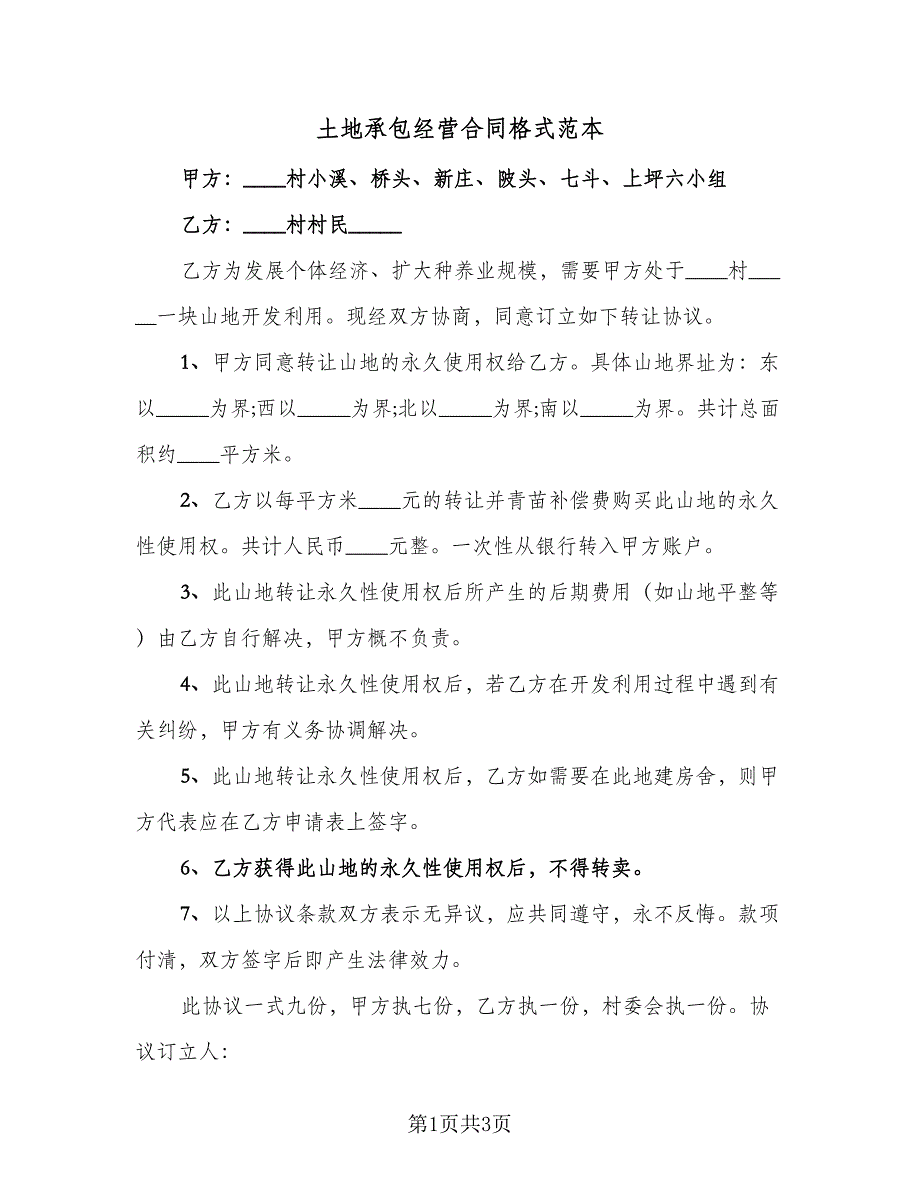 土地承包经营合同格式范本
甲方：____村小溪、桥头、新庄、陂头、七斗、上坪六小组
乙方：____村村民_____
乙方为发展个体经济、扩大种养业规模，需要甲方处于____村___
__一块山地开发利用。现经双方协商，同意订立如下转让协议。
1、甲方同意转让山地的永久使用权给乙方。具体山地界址为：东
以_____为界;西以_____为界;北以_____为界;南以_____为界。共计总面
积约____平方米。
2、乙方以每平方米____元的转让并青苗补偿费购买此山地的永久
性使用权。共计人民币____元整。一次性从银行转入甲方账户。
3、此山地转让永久性使用权后所产生的后期费用（如山地平整等
）由乙方自行解决，甲方概不负责。
4、此山地转让永久性使用权后，若乙方在开发利用过程中遇到有
关纠纷，甲方有义务协调解决。
5、此山地转让永久性使用权后，乙方如需要在此地建房舍，则甲
方代表应在乙方申请表上签字。
6、乙方获得此山地的永久性使用权后，不得转卖。
7、以上协议条款双方表示无异议，应共同遵守，永不反悔。款项
付清，双方签字后即产生法律效力。
此协议一式九份，甲方执七份，乙方执一份，村委会执一份。协
议订立人：
第1页共3页